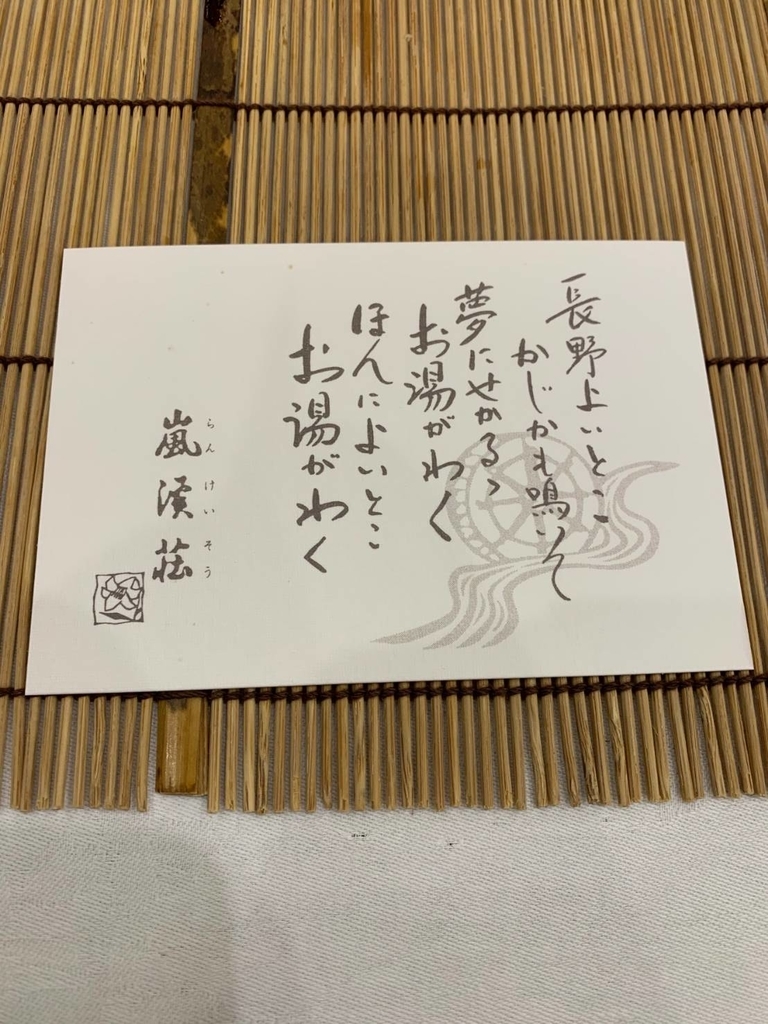 長野よいとこ
かじかも鳴いて
夢にせかるゝ
お湯がわく
ほんによいとこ
お湯がわく
嵐渓荘
らんけいそう